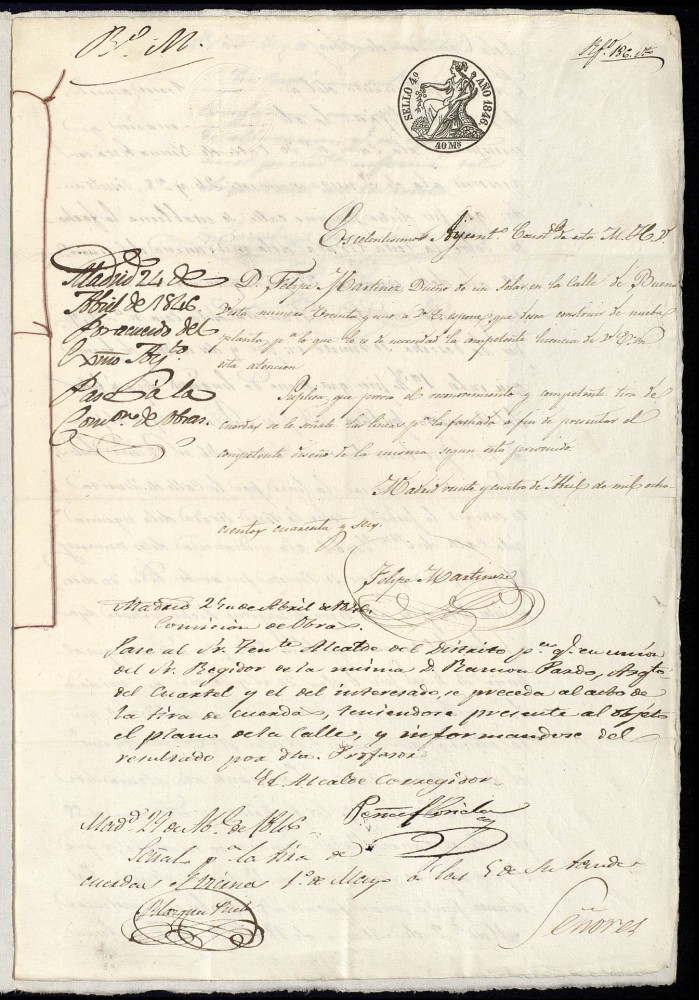 Bº. M.
SELLO 4º AÑO 1846.
40 Ms
Excelentisimo Ayuntº. Constl. de esta M. H. V.
Madrid 24 de
Abril de 1846
Por acuerdo del
Exmo Aytº.
Pase á la
Comon. de Obras.
D. Felipe Martinez Dueño de un Solar en la Calle de Buena
Vista numero treinta y uno a V. E. espone; que desea construir de nueba
planta, pª lo que le es de necesidad la competente licencia de V. E. en
esta atencion
Suplica, que previo el reconocimiento y competente tira de
cuerdas se le señale la linea pª la fachada a fin de presentar el
competente diseño de la misma segun está prevenido
Madrid veinte y cuatro de Abril de mil ocho
cientos cuarenta y seis
Felipe Martinez
Madrid 25 de Abril de 1846.
Comision de Obras.
Pase al Sr. Tente. Alcalde del Distrito pª. q. en union
del Sr. Regidor de la misma D. Ramon Pardo, Arqto.
del Cuartel y el del interesado, se preceda al acto de
la tira de cuerda, teniendose presente al objeto
el plano de la Calle, y informandose del
resultado por dho. Profesor
El Alcalde Corregidor
Peñaflorida
Madd. 29 de Ab. de 1846
Señal pª la tira de
cuerdas el viernes 1º. de Mayo á las 5 de su tarde
Señores